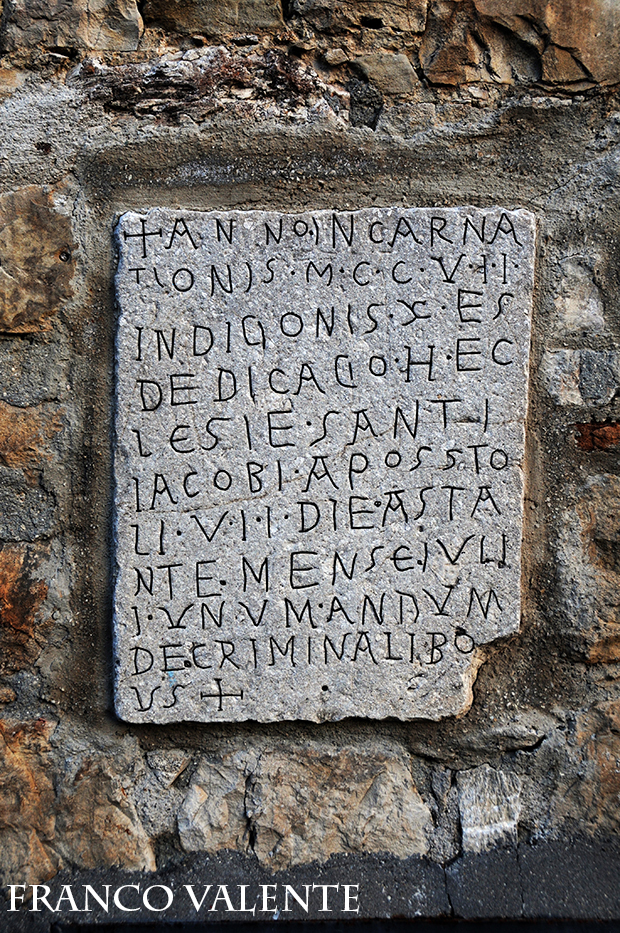 +ANNOINCARNA
TIONIS·M·C·C·VII
INDIGONIS·X·ES
DEDICACO·H·EC
LESIE·SANTI
IACOBI·APOSSTO
LI·VII·DIE·ASTA
NTE·MENSE·IVLI
I·VNVMANDVM
DECRIMINALIBO
VS+
FRANCO VALENTE